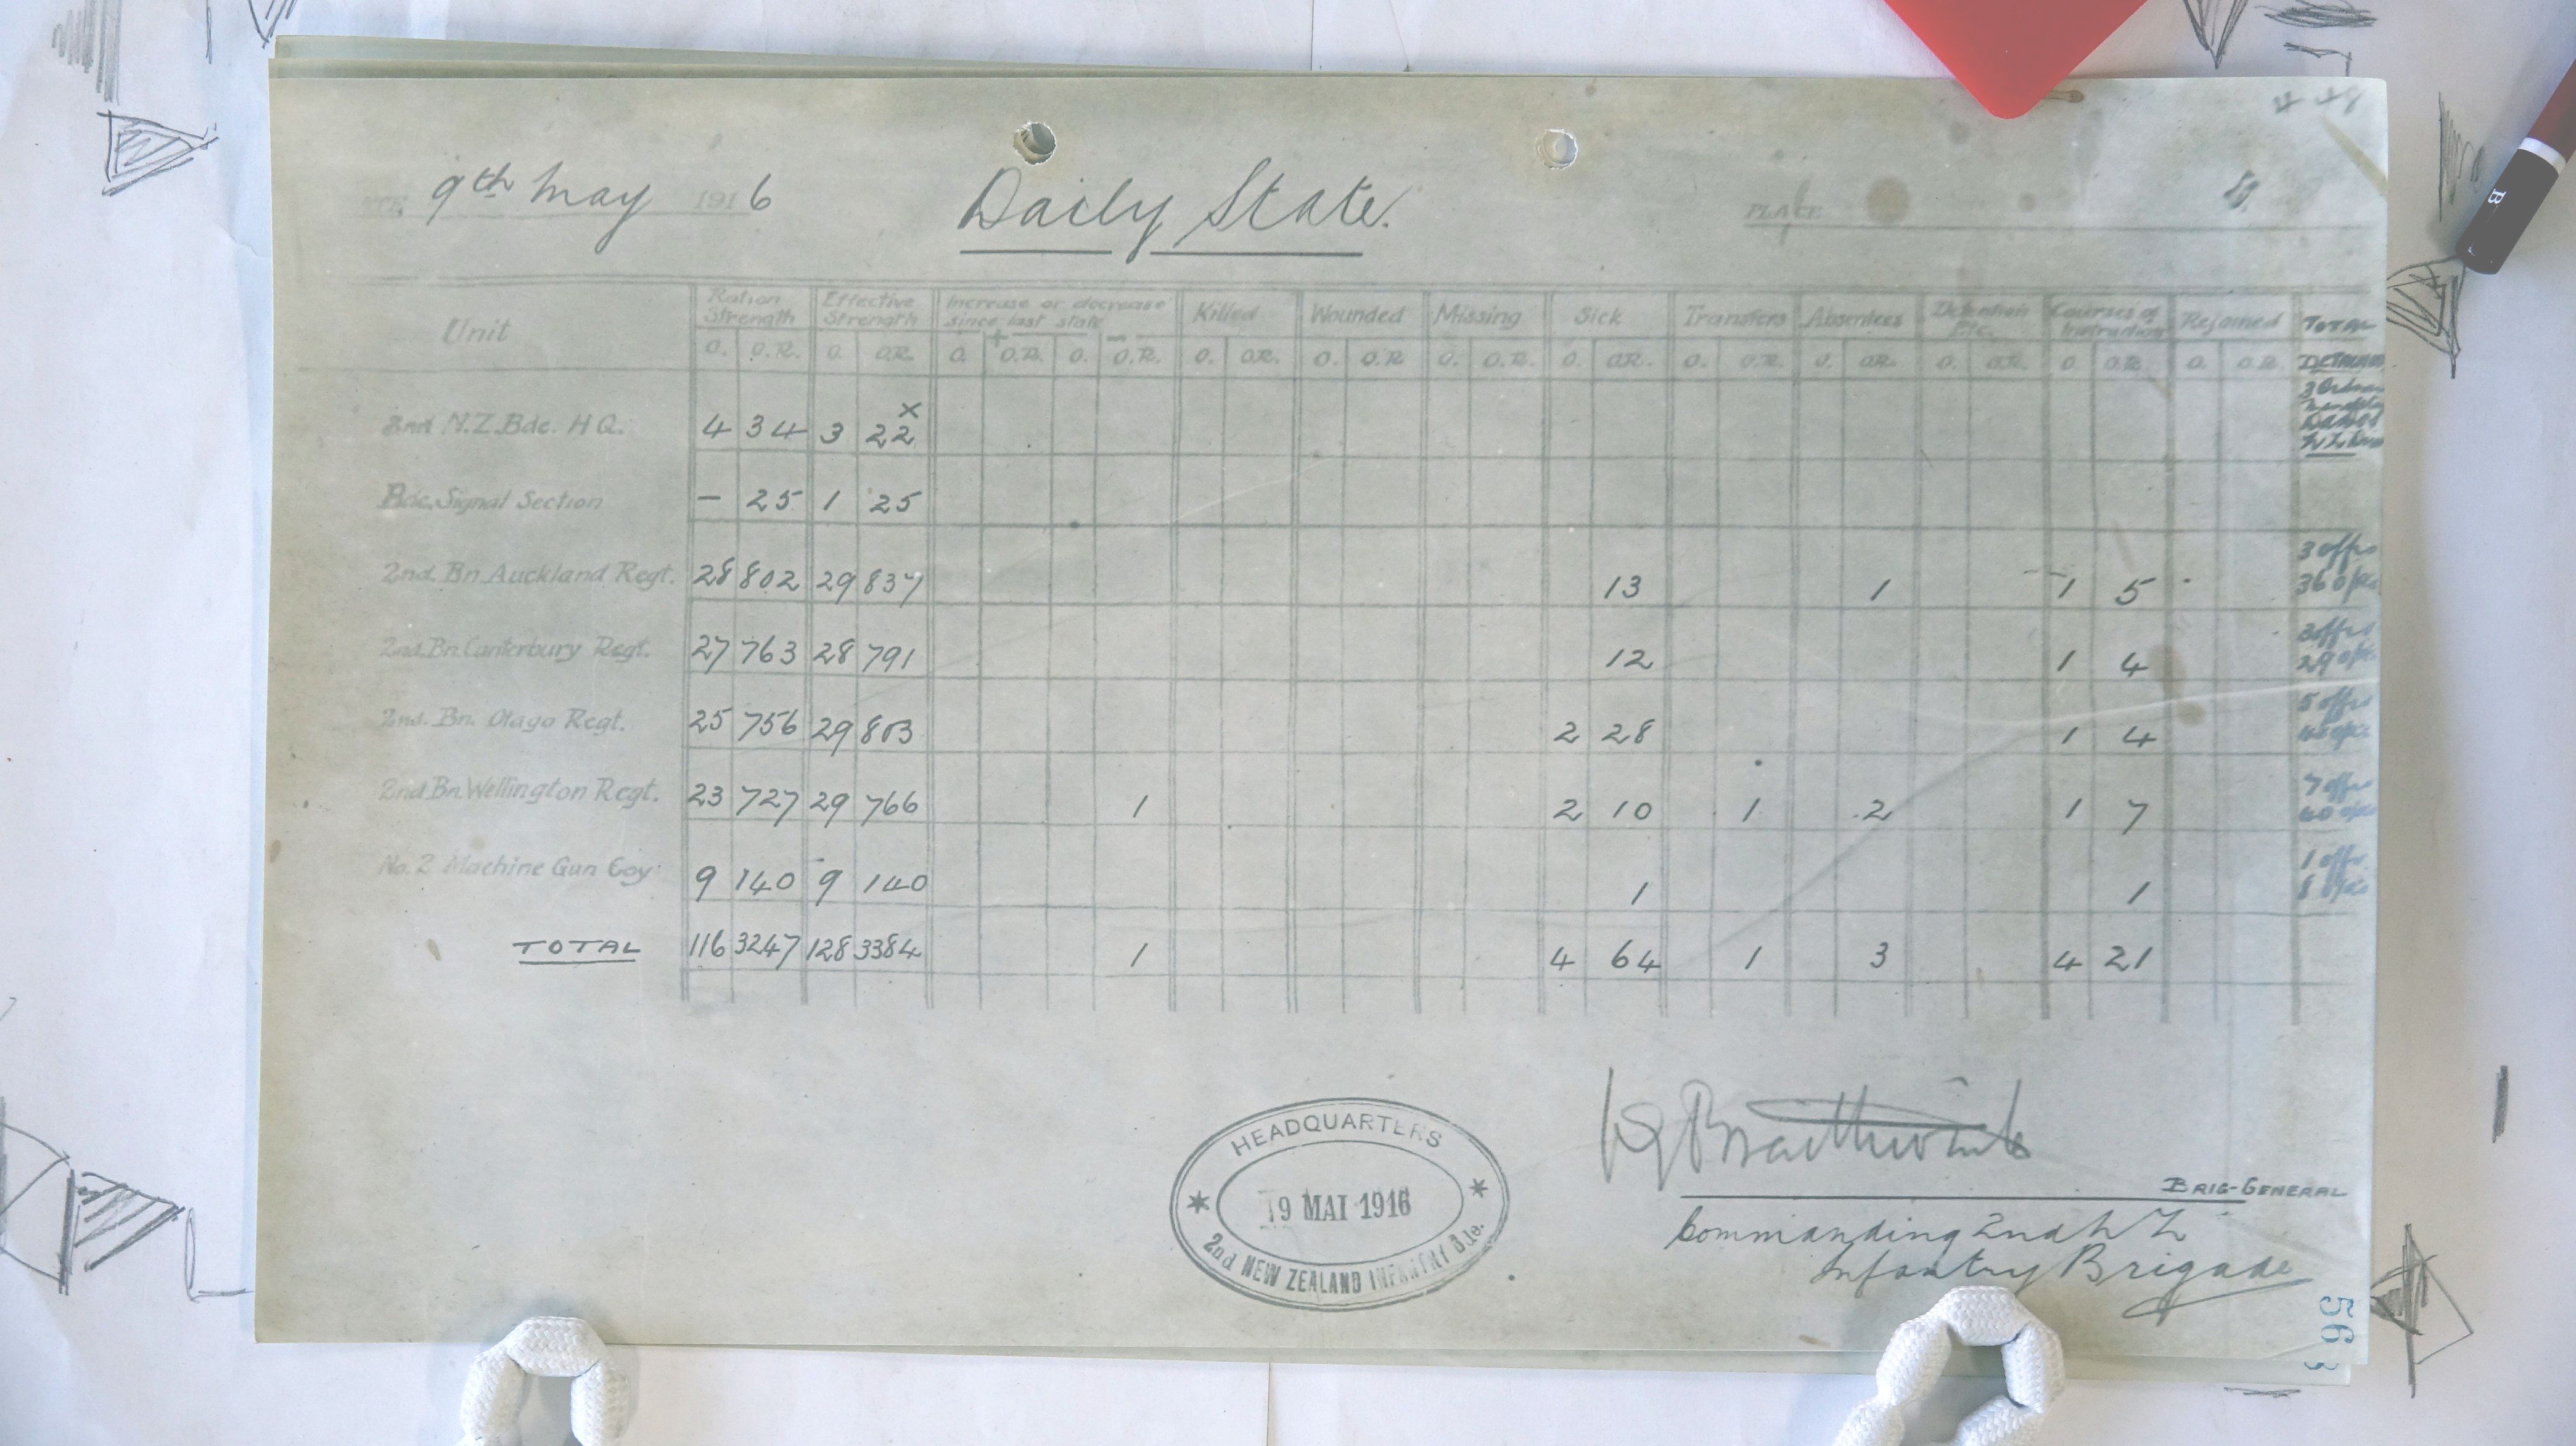 DATE 9th May 1916
Daily State.
PLACE
Unit Ration Strength Effective Strength Increase or decrease since last state Killed Wounded Missing Sick Transfers Absentees Detention Etc. Courses of Instruction Rejoined TOTAL
+ −
O. O.R. O. O.R. O. O.R. O. O.R. O. O.R. O. O.R. O. O.R. O. O.R. O. O.R. O. O.R. O. O.R. O O.R. O. O.R. DETACHED
2nd N.Z. Bde. H.Q. 4 34 3 22 x
Bde. Signal Section — 25 1 25
2nd. Bn. Auckland Regt. 28 802 29 837 13 1 1 5 3 offrs 36 o/rs
2nd. Bn. Canterbury Regt. 27 763 28 791 12 1 4 3 offrs 29 o/rs
2nd. Bn. Otago Regt. 25 756 29 803 2 28 1 4 5 offrs
2nd Bn. Wellington Regt. 23 727 29 766 1 2 10 1 2 1 7 7 offrs 40 o/rs
No. 2 Machine Gun Coy. 9 140 9 140 1 1 1 offr 8 o/rs
TOTAL 116 3247 128 3384 1 4 64 1 3 4 21
HEADQUARTERS
19 MAI 1916
2nd NEW ZEALAND INFANTRY Bde.
Braithwaite
BRIG-GENERAL
Commanding 2nd N Z
Infantry Brigade
563
B